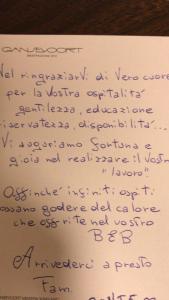 GANUSCOORT
Nel ringraziarvi di vero cuore
per la vostra ospitalitá
gentilezza, educazione
riservatezza, disponibilitá...
Vi auguriamo fortuna e
gioia nel realizzare il vostro
"lavoro".
Affinché infiniti ospiti
possano godere del calore
che offrite nel vostro
B&B
Arrivederci a presto
Fam.